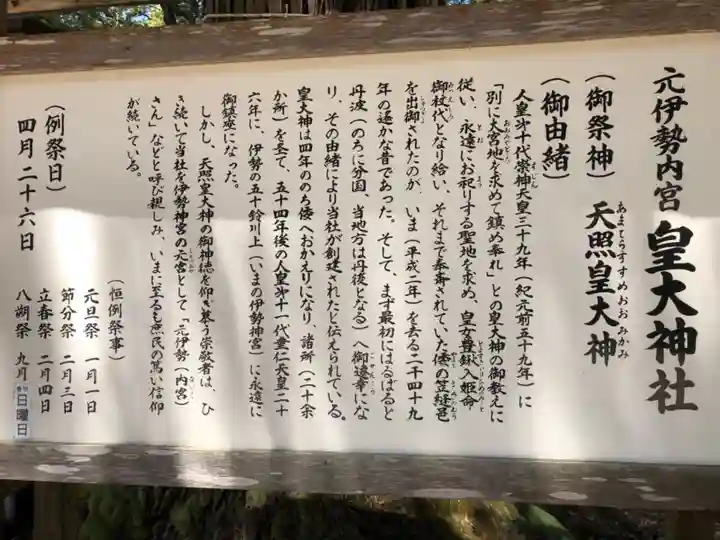 元伊勢内宮 皇大神社
(御祭神) 天照皇大神
あまてらすすめおおみかみ
(御由緒)
人皇第十代崇神天皇三十九年(紀元前五十九年)に
「別に大宮地を求めて鎮め奉れ」との皇大神の御教えに
従い、永遠にお祀りする聖地を求め、皇女豊鍬入姫命
御杖代となり給い、それまで奉斎されていた倭の笠縫邑
を出御されたのが、いま(平成二年)を去る二千四十九
年の遙かな昔であった。そして、まず最初にはるばると
丹波(のちに分国、当地方は丹後となる)へ御遠幸にな
り、その由緒により当社が創建されたと伝えられている。
皇大神は四年ののち倭へおかえりになり、諸所(二十余
か所)を経て、五十四年後の人皇第十一代垂仁天皇二十
六年に、伊勢の五十鈴川上(いまの伊勢神宮)に永遠に
御鎮座になった。
しかし、天照皇大神の御神徳を仰ぎ慕う崇敬者は、ひ
き続いて当社を伊勢神宮の元宮として「元伊勢(内宮)
さん」などと呼び親しみ、いまに至るも庶民の篤い信仰
が続いている。
(恒例祭事)
元旦祭 一月一日
節分祭 二月三日
立春祭 二月四日
八朔祭 九月 日曜日
(例祭日)
四月二十六日